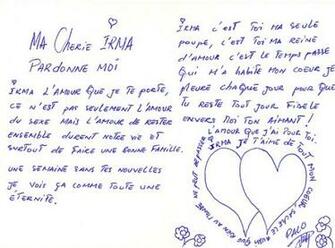 MA CHERIE IRMA
PARDONNE MOÍ
IRMA L'AMOUR QUE JE TE PORTE,
CE N'EST PAS SEULEMENT L'AMOUR
DU SEXE MAIS L'AMOUR DE RESTER
ENSEMBLE DURENT NOTRE VIE ET
SURTOUT DE FAIRE UNE BONNE FAMILLE.
UNE SEMAINE SANS TES NOUVELLES
JE VOIS ÇA COMME TOUTE UNE
ÉTERNITÉ.
IRMA C'EST TOI MA SEULE
POUPE, C'EST TOI MA REINE
D'AMOUR C'EST LE TEMPS PASSÉ
QUI M'A HABITE MON COEUR JE
PLEURE CHAQUE JOUR POUR QUE
TU RESTE TOUT JOUR FIDELE
ENVERS MOI TON AIMANT!
L'AMOUR QUE J'AI POUR TOI.
IRMA JE T'AIME DE TOUT MON
COEUR
QUE RIEN AU MONDE NE PEUT DEPASSER
PACO